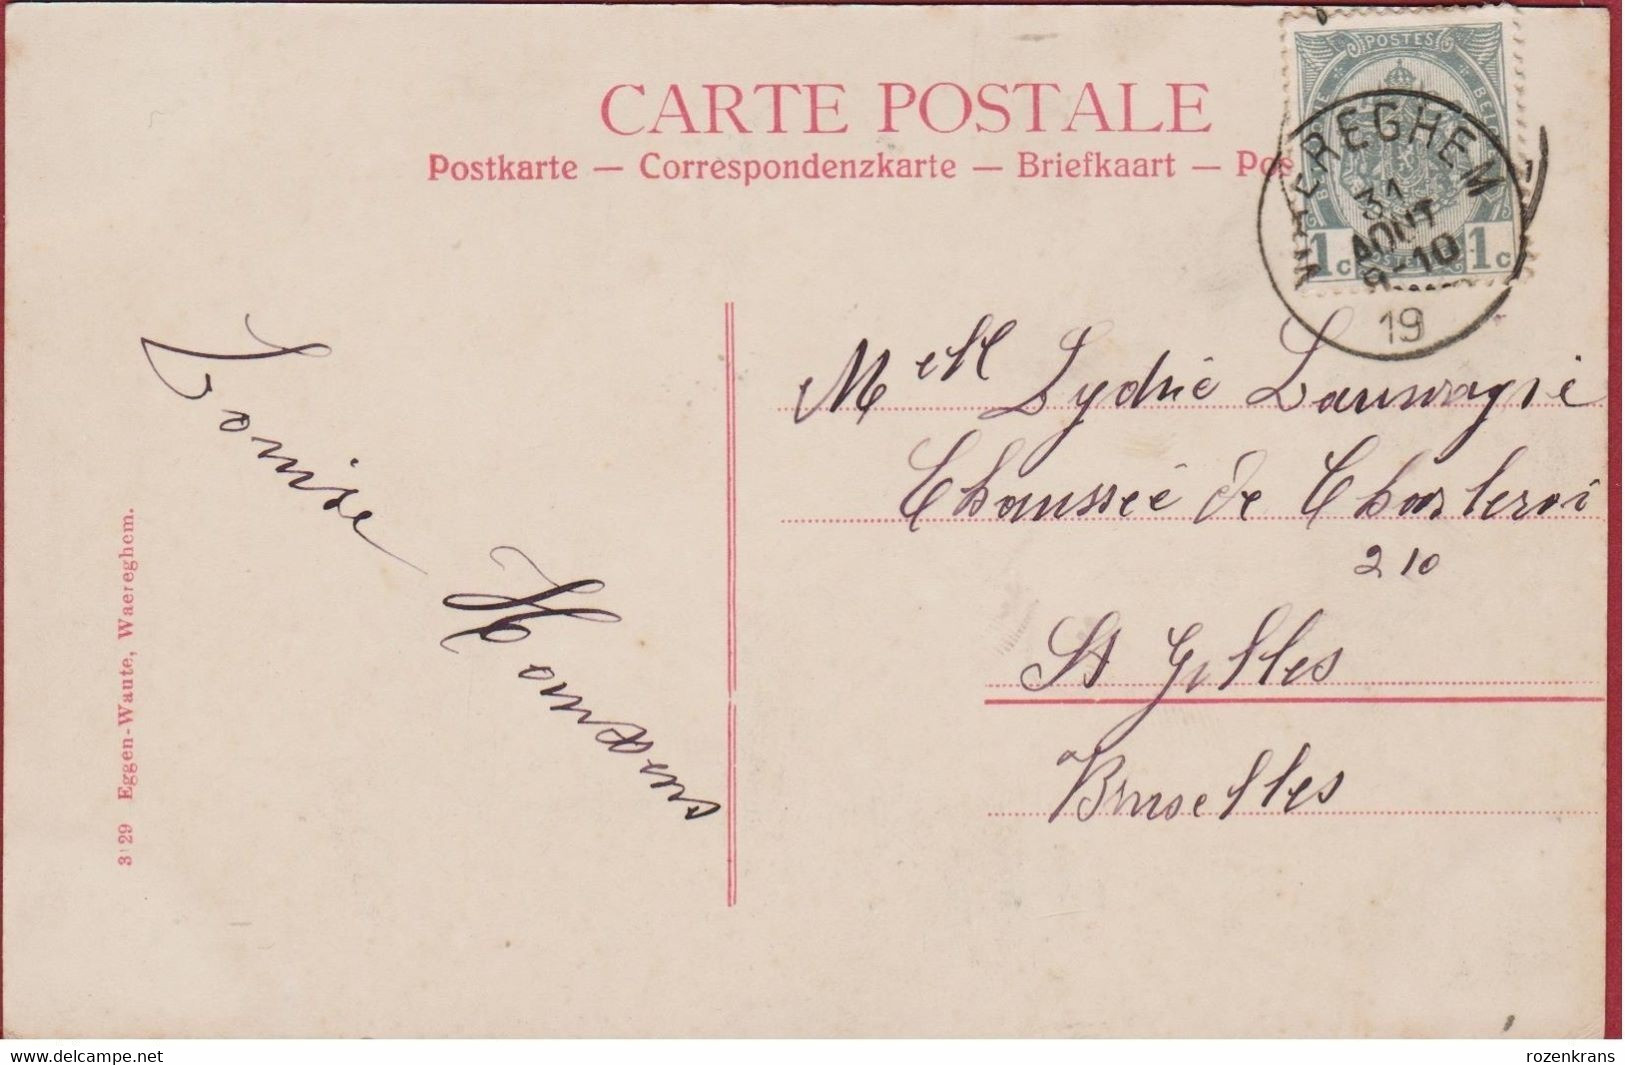 CARTE POSTALE
Postkarte — Correspondenzkarte — Briefkaart — Pos
POSTES
1c 1c
WAEREGHEM
31
AOUT
9-10
19
Mell Lydie Lauwagie
Chaussée de Charleroi
210
St Gilles
Bruxelles
Louise
3129 Eggen-Waute, Waereghem.
www.delcampe.net
rozenkrans